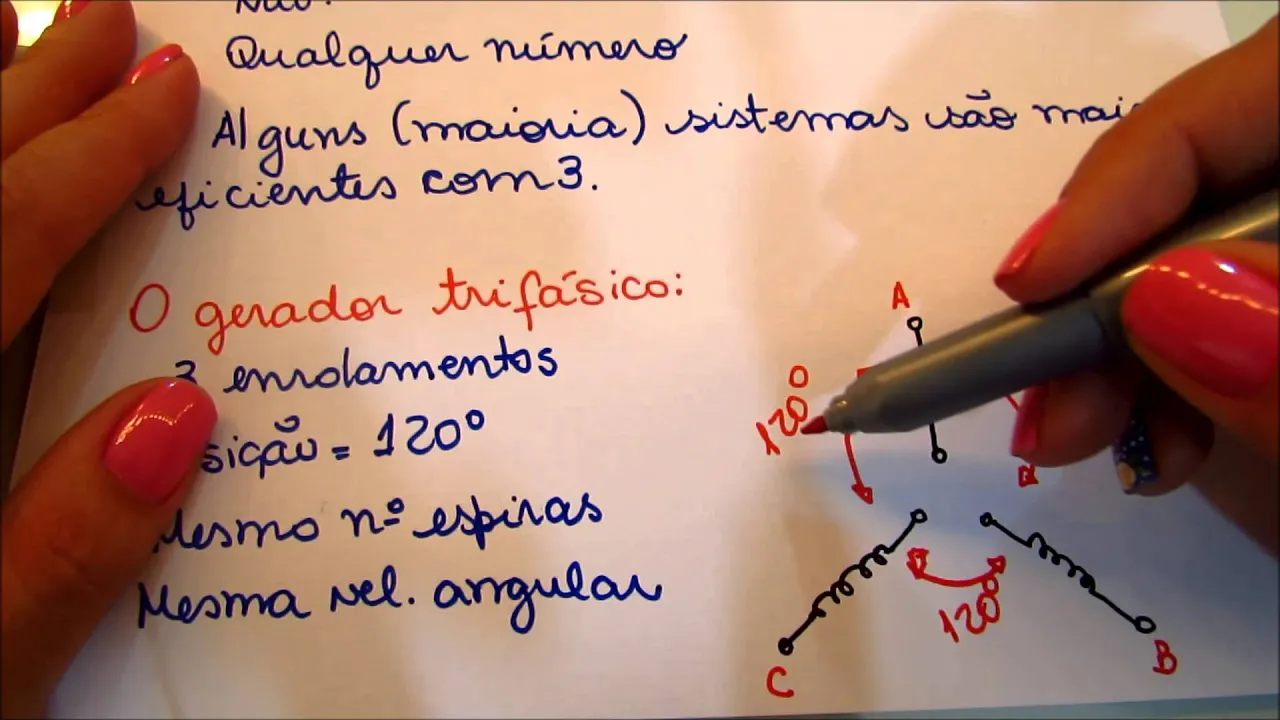 Qualquer número
Alguns (maioria) sistemas são mais
eficientes com 3.
O gerador trifásico:
3 enrolamentos
sição = 120º
Mesmo nº espiras
Mesma vel. angular
A
120º
120º
C
B